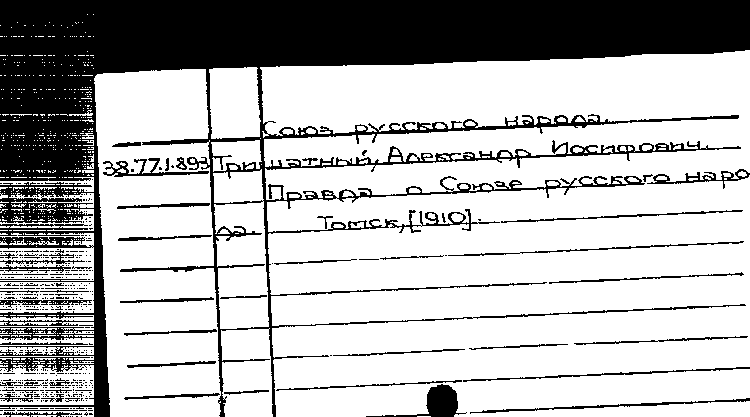 Союз русского народа.
38.77.1.893 Тришатный, Александр Иосифович.
Правда о Союзе русского наро
да. Томск, [1910].